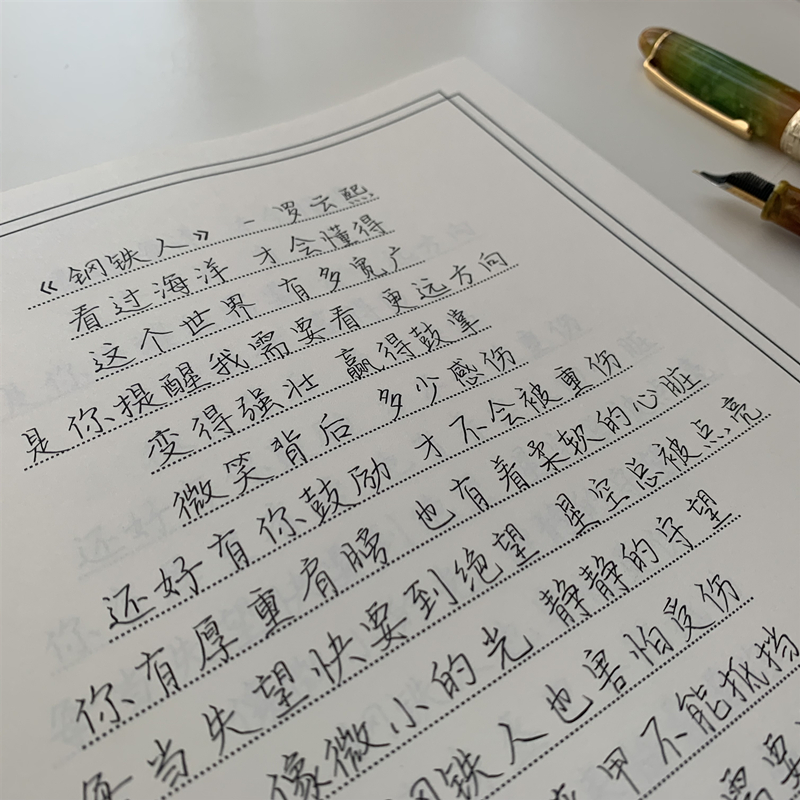 《钢铁人》 - 罗云熙
看过海洋 才会懂得
这个世界 有多宽广
是你提醒我需要看 更远方向
变得强壮 赢得鼓掌
微笑背后 多少感伤
还好有你鼓励 才不会被重伤
你有厚重肩膀 也有着柔软的心脏
每当失望快要到绝望 星空总被点亮
像微小的光 静静的守望
钢铁人也害怕受伤
甲不能抵挡
需要